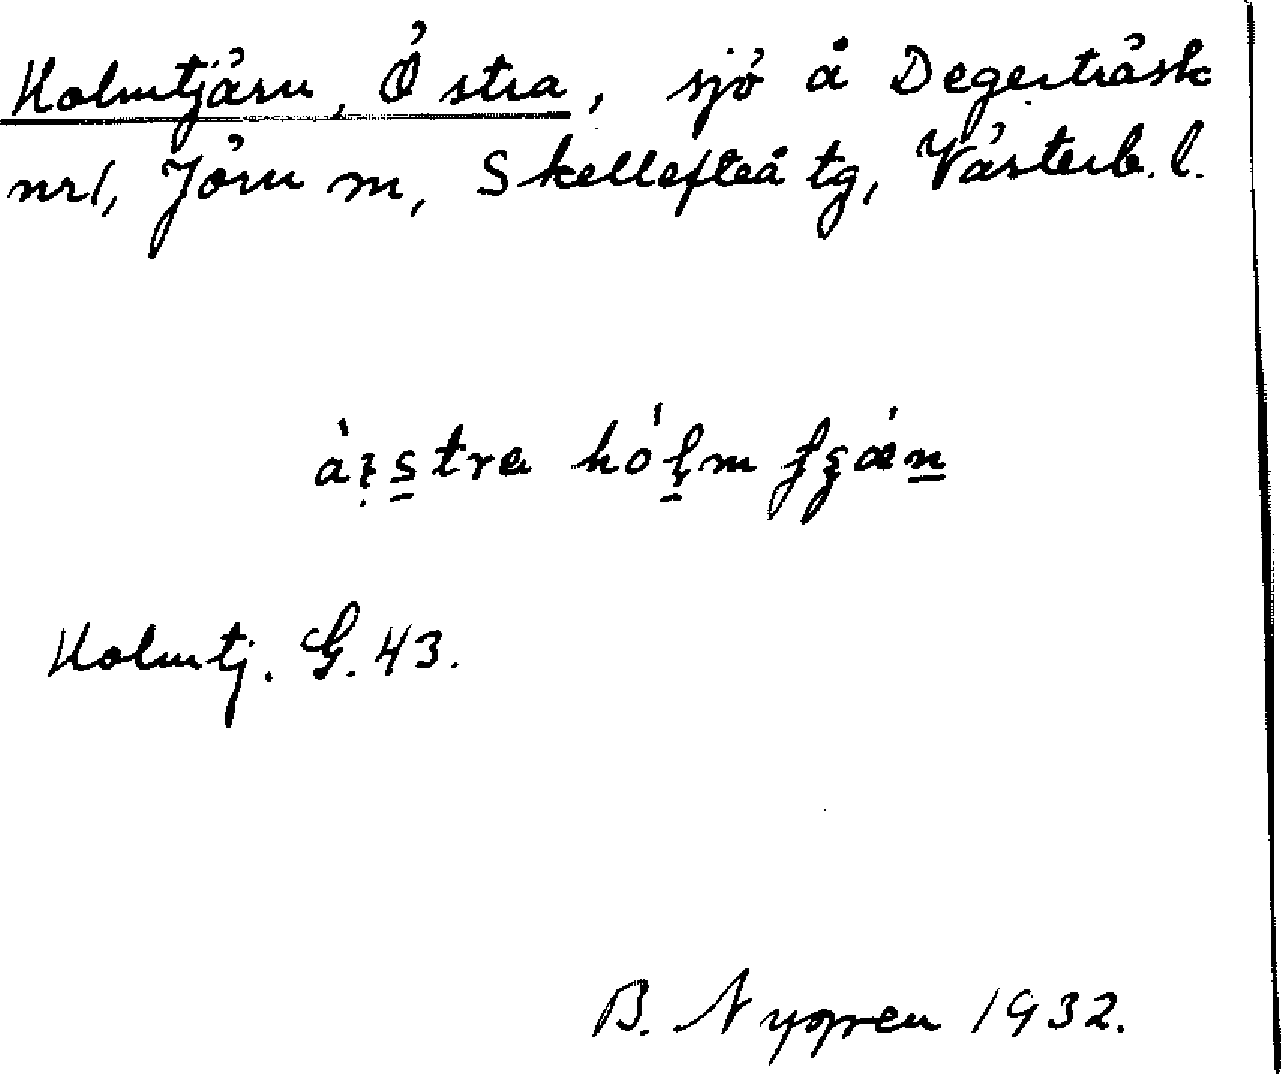 Holmtjärn, Östra, sjö å Degerträsk
nr 1, Jörn m, Skellefteå tg, Västerb. l.
Holmtj. G. 43.
B. Nygren 1932.